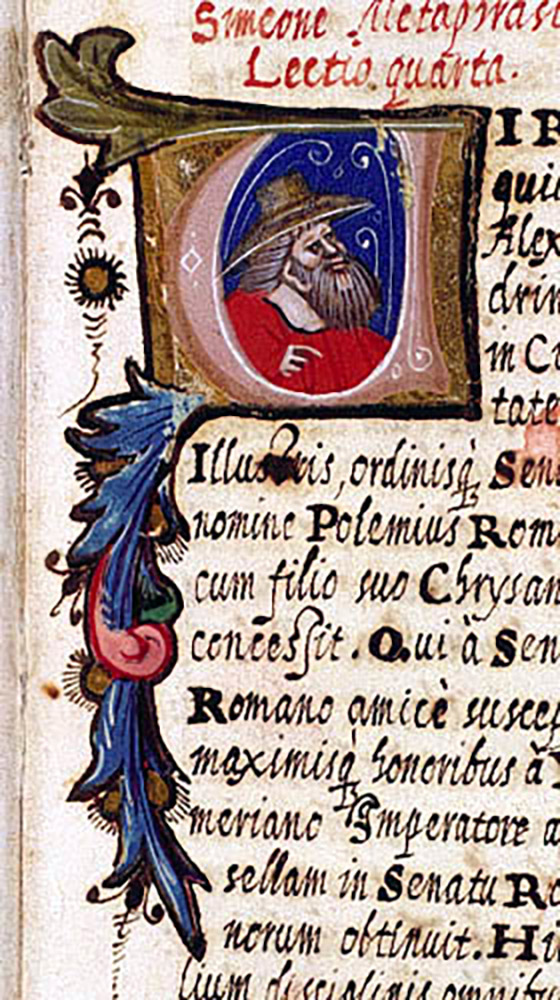 Simeone Metaphras
Lectio quarta.
IR
qui
Alex
drin
in Ci
tate
Illustris, ordinisq̃ Sen
nomine Polemius Rom
cum filio suo Chrysan
concessit. Qui à Sen
Romano amicè suscep
maximisq̃ honoribus à V
meriano Imperatore a
sellam in Senatu Ro
norum obtinuit. Hi
lium disciplinis omnibu